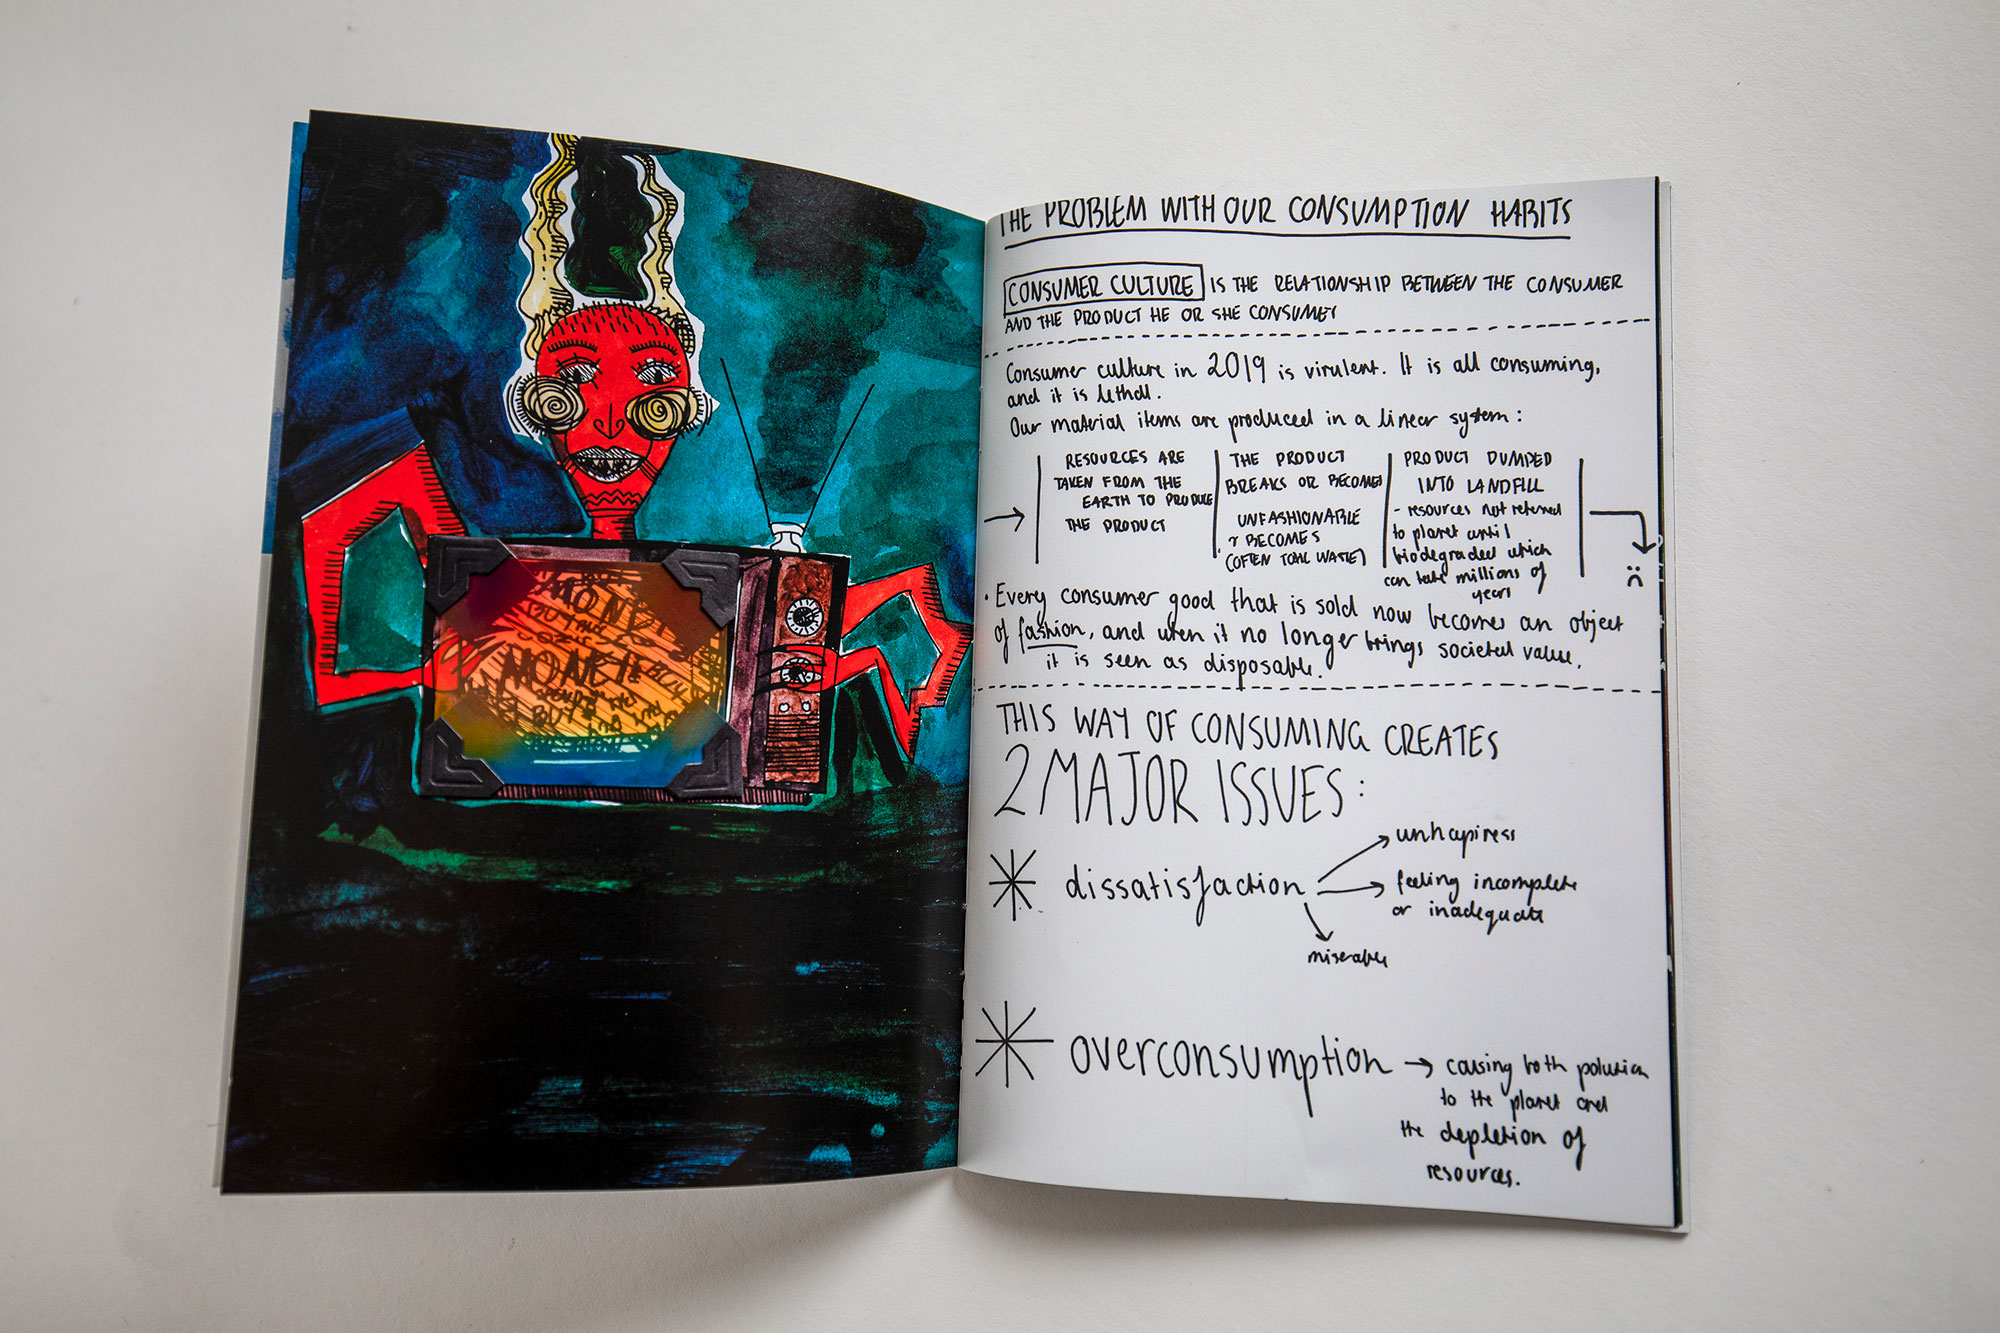 MONEY
MONEY
BUY
THE PROBLEM WITH OUR CONSUMPTION HABITS
CONSUMER CULTURE IS THE RELATIONSHIP BETWEEN THE CONSUMER
AND THE PRODUCT HE OR SHE CONSUMES
Consumer culture in 2019 is virulent. It is all consuming,
and it is lethall.
Our material items are produced in a linear system:
RESOURCES ARE
TAKEN FROM THE
EARTH TO PRODUCE
THE PRODUCT
THE PRODUCT
BREAKS OR BECOMES
UNFASHIONABLE
& BECOMES
(OFTEN TOXIC WASTE)
PRODUCT DUMPED
INTO LANDFILL
- resources not returned
to planet until
biodegraded which
can take millions of
years
:(
· Every consumer good that is sold now becomes an object
of fashion, and when it no longer brings societal value,
it is seen as disposable.
THIS WAY OF CONSUMING CREATES
2 MAJOR ISSUES:
dissatisfaction
unhapiness
feeling incomplete
or inadequate
miserable
overconsumption
causing both polution
to the planet and
the depletion of
resources.